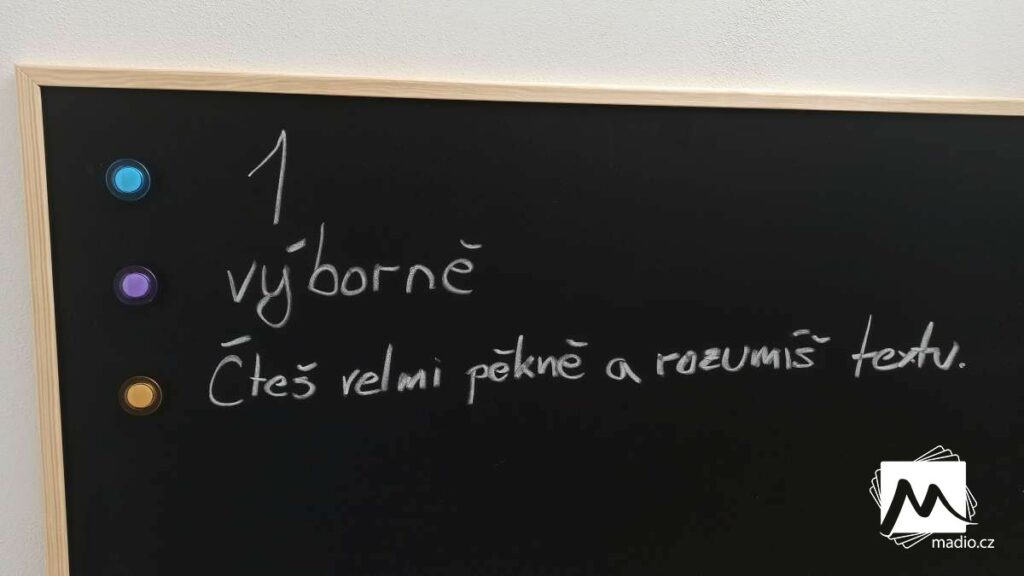 1
výborně
Čteš velmi pěkně a rozumíš textu.
madio.cz